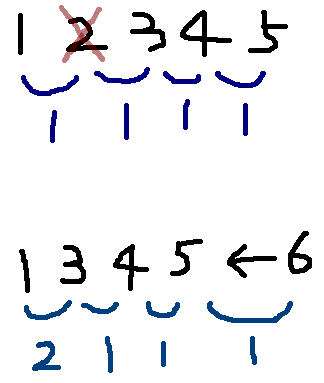 1 2 3 4 5
1 1 1 1
1 3 4 5 ← 6
2 1 1 1